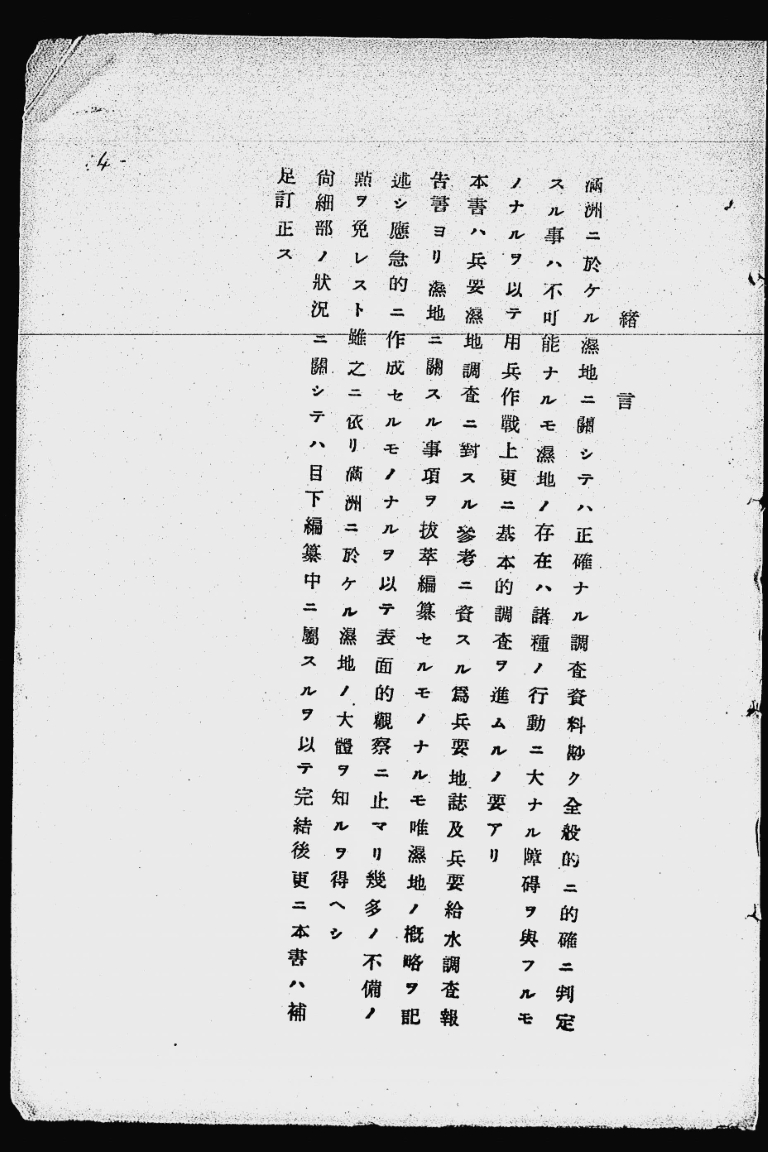 緒言
滿洲ニ於ケル濕地ニ關シテハ正確ナル調査資料尠ク全般的ニ的確ニ判定
スル事ハ不可能ナルモ濕地ノ存在ハ諸種ノ行動ニ大ナル障碍ヲ與フルモ
ノナルヲ以テ用兵作戰上更ニ基本的調査ヲ進ムルノ要アリ
本書ハ兵要濕地調査ニ對スル參考ニ資スル爲兵要地誌及兵要給水調査報
告書ヨリ濕地ニ關スル事項ヲ拔萃編纂セルモノナルモ唯濕地ノ槪略ヲ記
述シ應急的ニ作成セルモノナルヲ以テ表面的觀察ニ止マリ幾多ノ不備ノ
點ヲ免レスト雖之ニ依リ滿洲ニ於ケル濕地ノ大體ヲ知ルヲ得ヘシ
尙細部ノ狀況ニ關シテハ目下編纂中ニ屬スルヲ以テ完結後更ニ本書ハ補
足訂正ス
4